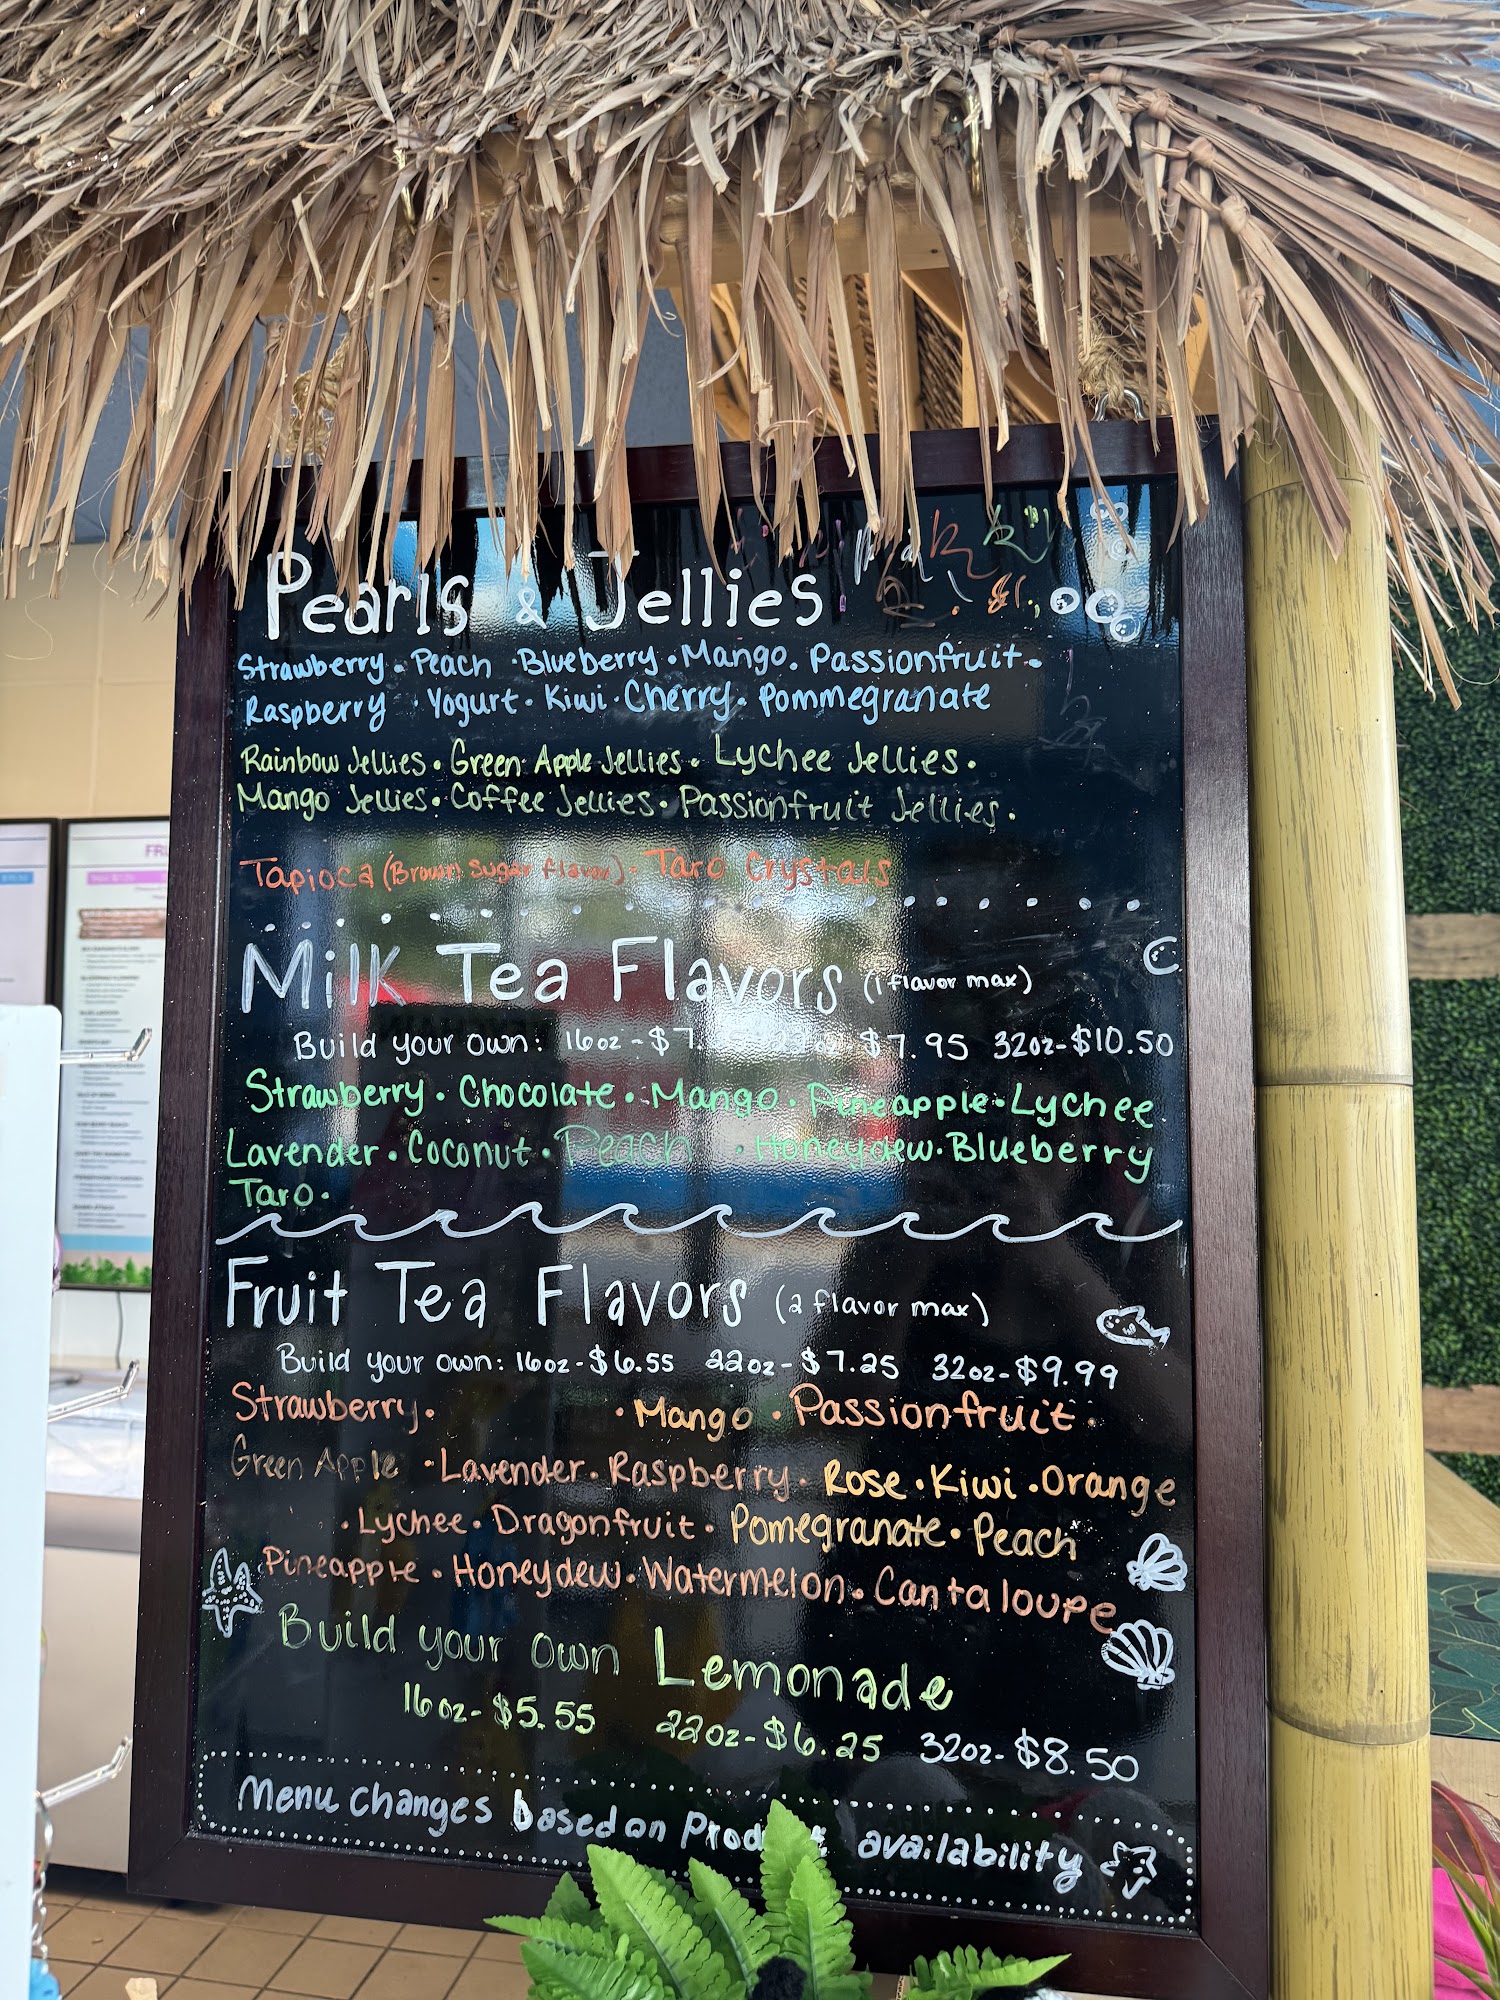 Pearls & Jellies
Strawberry • Peach • Blueberry • Mango • Passionfruit •
Raspberry • Yogurt • Kiwi • Cherry • Pommegranate
Rainbow Jellies • Green Apple Jellies • Lychee Jellies •
Mango Jellies • Coffee Jellies • Passionfruit Jellies •
Tapioca (Brown Sugar flavor) • Taro Crystals
Milk Tea Flavors (1 flavor max)
Build your own: 16oz - $7. $7.95 32oz - $10.50
Strawberry • Chocolate • Mango • Pineapple • Lychee
Lavender • Coconut • Peach • Honeydew • Blueberry
Taro •
Fruit Tea Flavors (2 flavor max)
Build your own: 16oz - $6.55 22oz - $7.25 32oz - $9.99
Strawberry • • Mango • Passionfruit •
Green Apple • Lavender • Raspberry • Rose • Kiwi • Orange
• Lychee • Dragonfruit • Pomegranate • Peach
Pineapple • Honeydew • Watermelon • Cantaloupe
Build your own Lemonade
16oz - $5.55 22oz - $6.25 32oz - $8.50
Menu changes based on availability